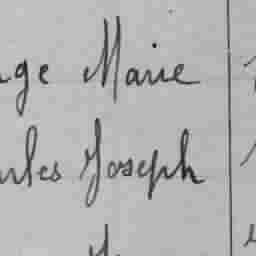 ge Marie
rles Joseph